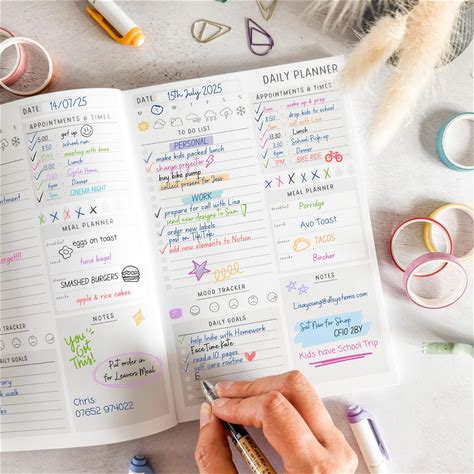 DATE 14/07/25
APPOINTMENTS @ TIMES
5:00 get up
school run
meeting with boss
Lunch
Cycle Home
Dinner
CINEMA NIGHT
MEAL PLANNER
X X X X X
breakfast
eggs on toast
lunch
tuna bagel
dinner
SMASHED BURGERS
snacks
apple & rice cakes
NOTES
You Got This!
Put order in for Leavers Meal
Chris:
07652 974022
MOOD TRACKER
DAILY GOALS
DATE 15th July 2025
M T W T F S S
TO DO LIST
PERSONAL
make kids packed lunch
charge projector
buy bike pump
collect present for Jess
WORK
prepare for call with Lisa
send new designs to Sam!
order new labels
post on TikTok
add new elements to Notion
MOOD TRACKER
DAILY GOALS
help Indie with Homework
FaceTime Kate
read 10 pages
self care routine
E
DAILY PLANNER
APPOINTMENTS @ TIMES
wake up & prep
drop kids to school
call with Lisa
Lunch
School Pick-up
6pm Dinner
7PM BIKE RIDE
MEAL PLANNER
X X X X X
breakfast
Porridge
lunch
Avo Toast
dinner
TACOS
snacks
Bircher
NOTES
Lisayoung@dlsystems.com
Sat Nav for Shop
CF10 2BY
Kids have School Trip